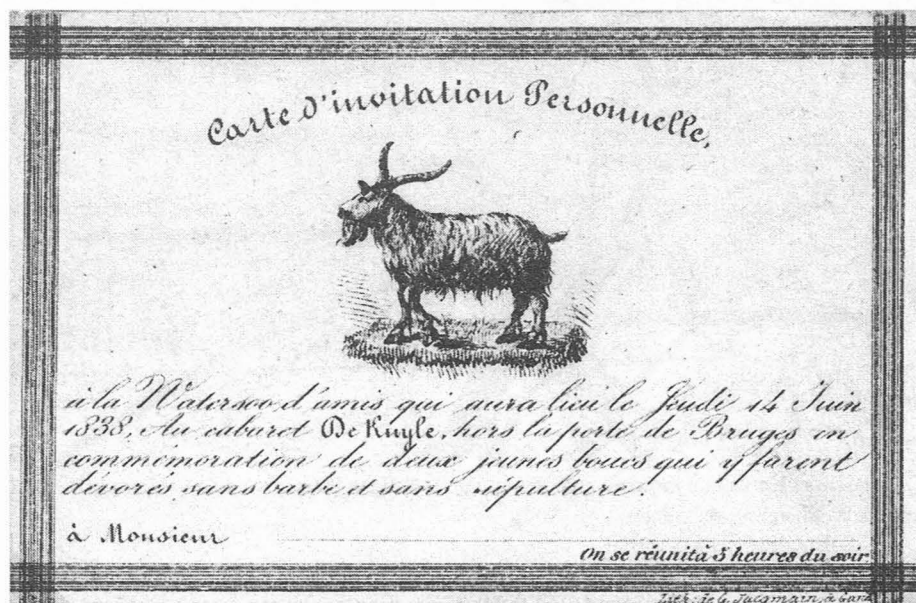 Carte d'invitation Personnelle,
à la Watersoo d'amis qui aura lieu le Jeudi 14 Juin
1838, Au cabaret De Kuyle, hors la porte de Bruges en
commémoration de deux jeunes boucs qui y furent
dévorés sans barbe et sans sépulture.
à Monsieur
On se réunit à 5 heures du soir
Lith: de G. Jacqmain, à Gand